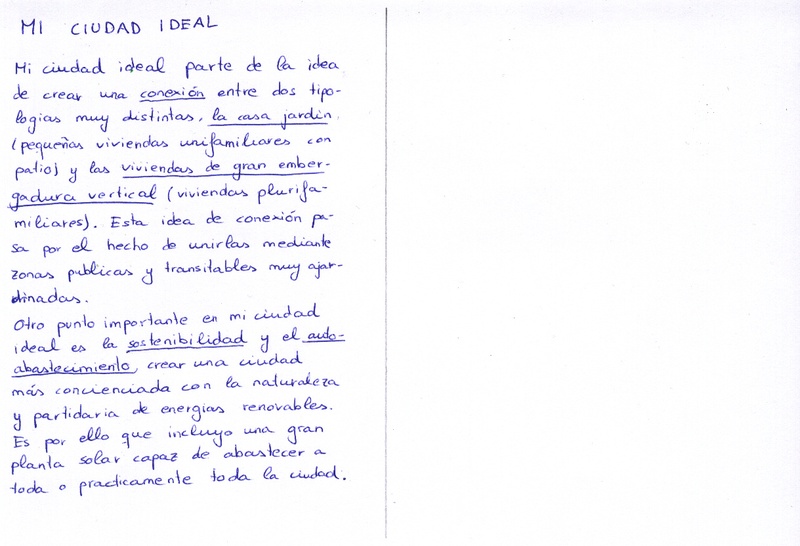 MI CIUDAD IDEAL
Mi ciudad ideal parte de la idea
de crear una conexión entre dos tipo-
logias muy distintas, la casa jardín
(pequeñas viviendas unifamiliares con
patio) y las viviendas de gran ember-
gadura vertical (viviendas plurifa-
miliares). Esta idea de conexión pa-
sa por el hecho de unirlas mediante
zonas publicas y transitables muy ajar-
dinadas.
Otro punto importante en mi ciudad
ideal es la sostenibilidad y el auto-
abastecimiento, crear una ciudad
más concienciada con la naturaleza
y partidaria de energías renovables.
Es por ello que incluyo una gran
planta solar capaz de abastecer a
toda o practicamente toda la ciudad.